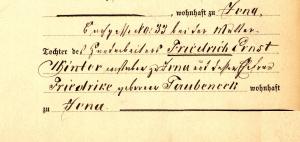 , wohnhaft zu Jena,
No: 33 bei der Mutter.
Tochter des Handarbeiters Friedrich Ernst
Winter zu Jena und dessen Ehefrau
Friedrike, geborene Taubeneck wohnhaft
zu Jena